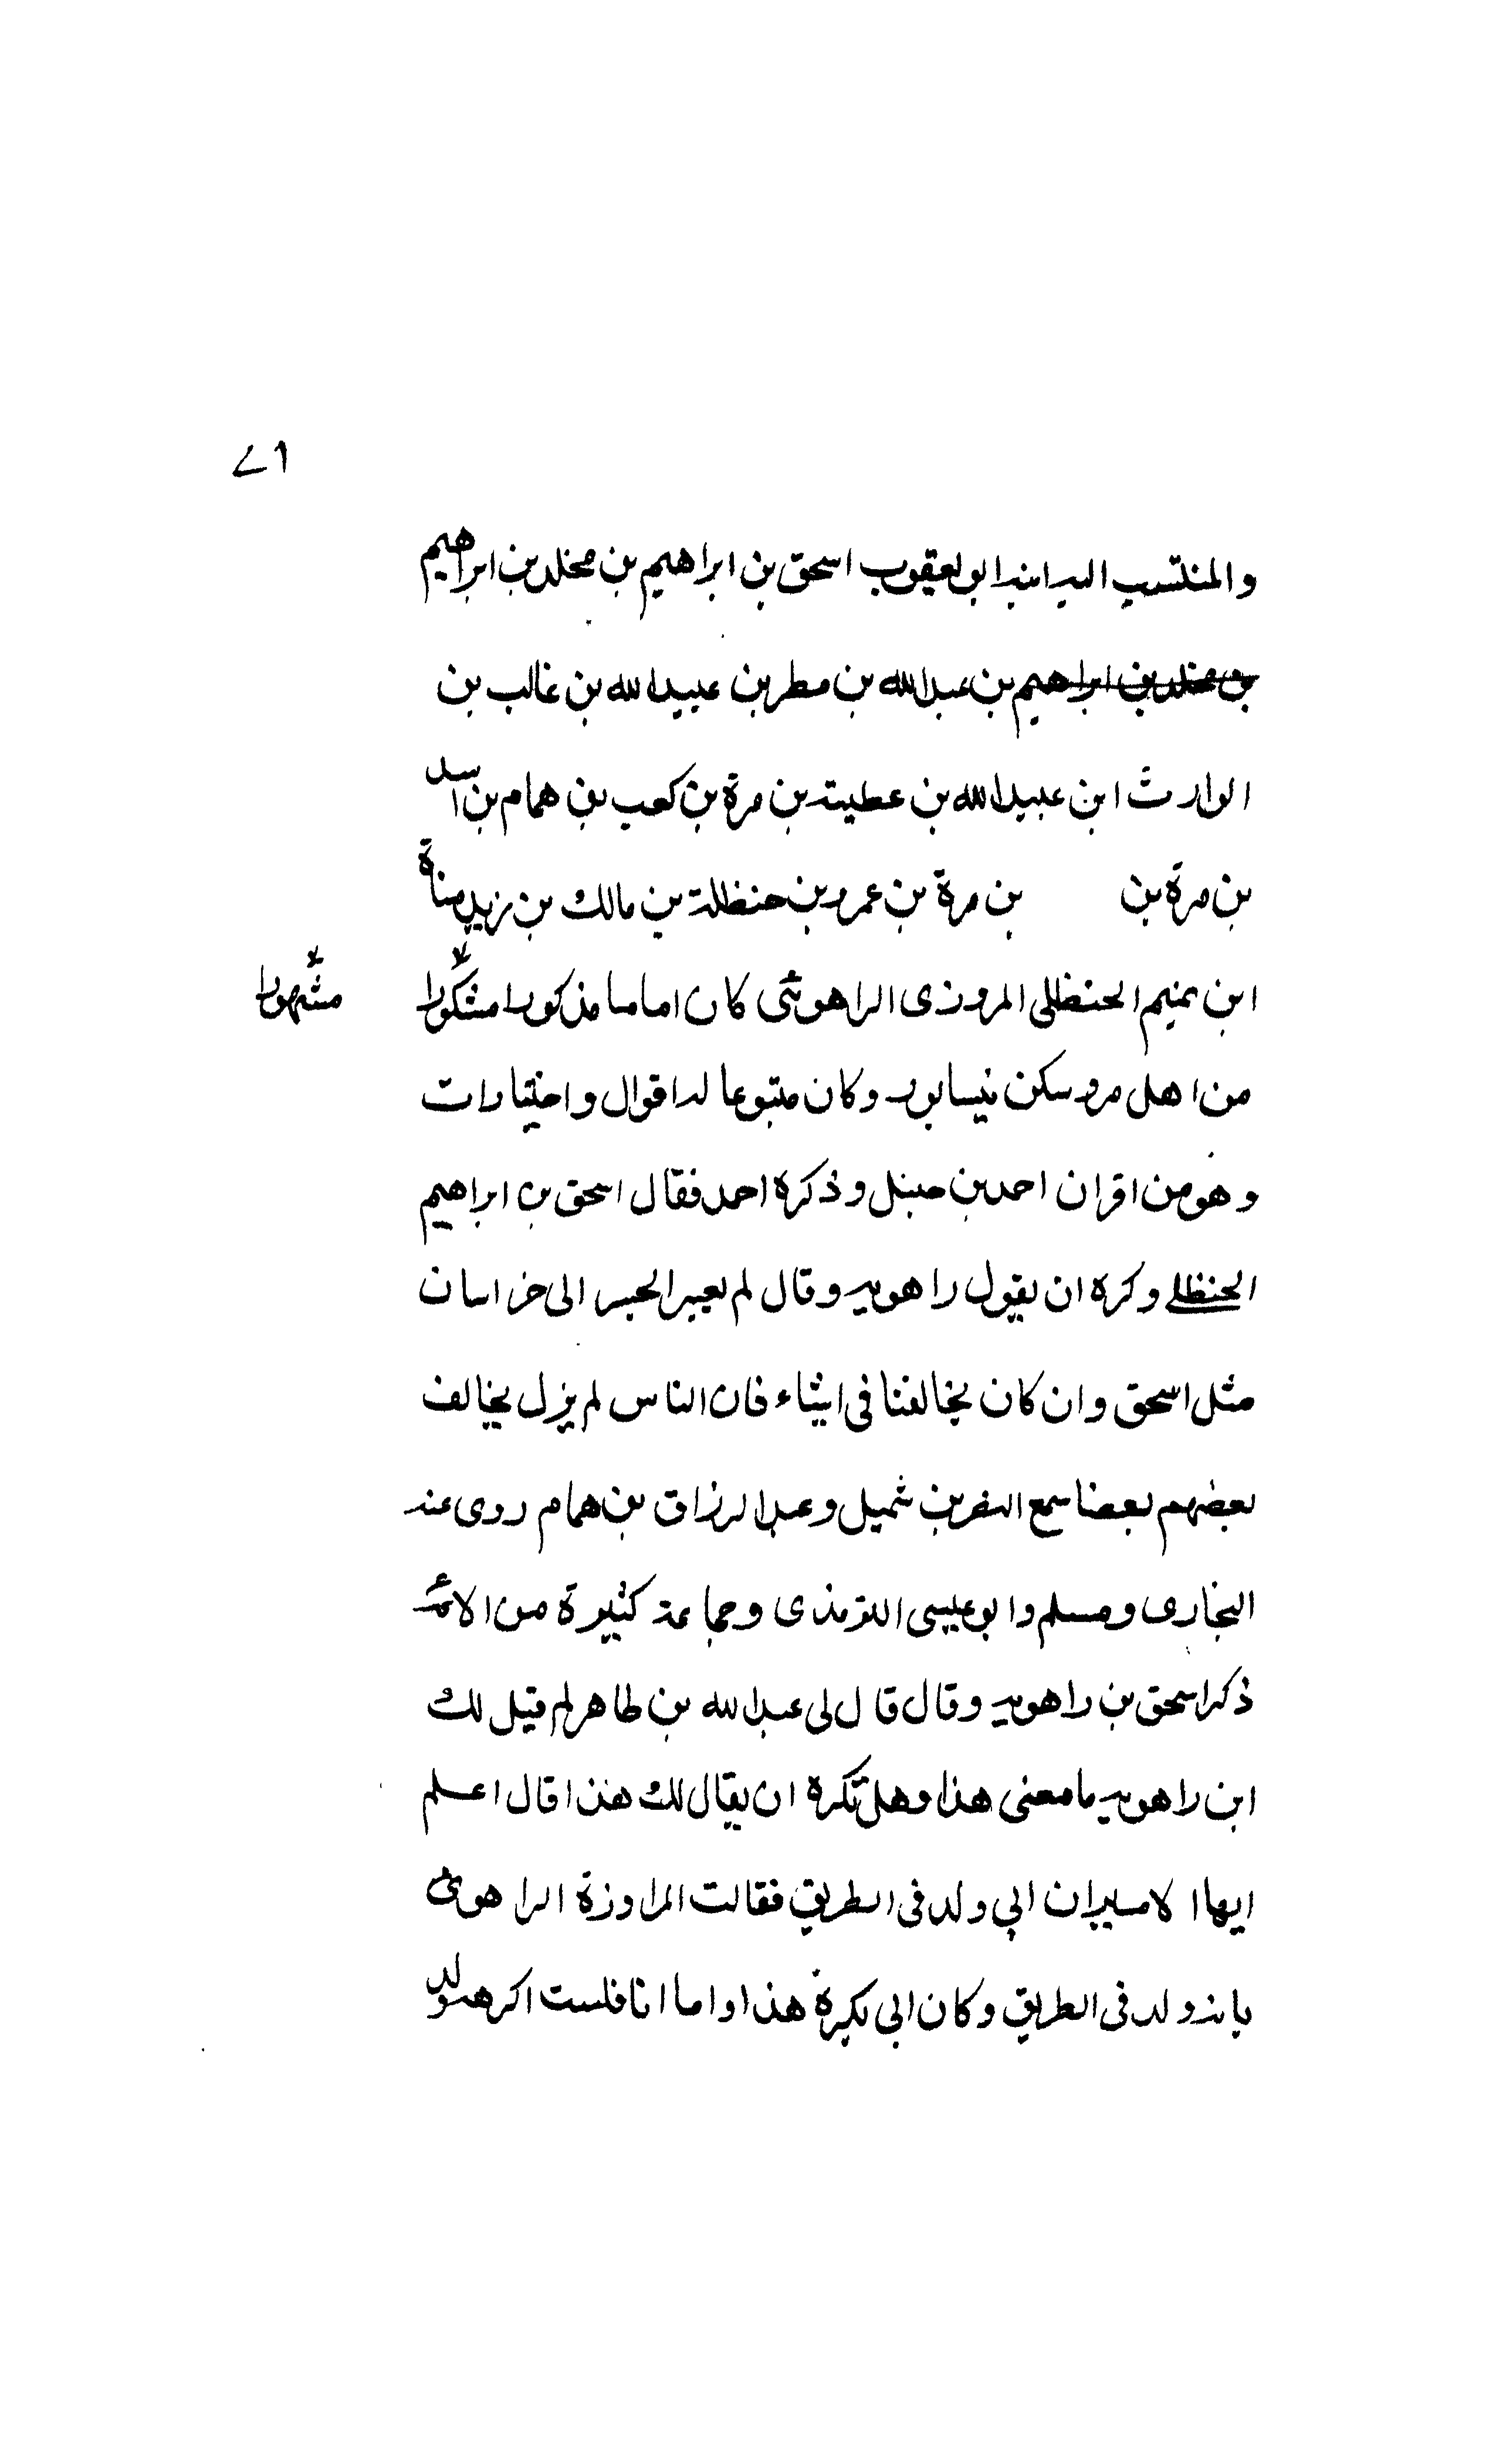 ٧١
والمنتسب اليه ابنه ابو يعقوب اسحق بن ابراهيم بن مخلد بن ابراهيم
بن مخلد بن ابراهيم بن عبد الله بن مطر بن عبيد الله بن غالب بن
الوارث ابن عبيد الله بن عطية بن مرة بن كعب بن همام بن اسد
بن مرة بن بن مرة بن عمرو بن حنظلة بن مالك بن زيد مناة
ابن تميم الحنظلى المروزى الراهوئى كان اماما مذكورا مشكورا مشهورا
من اهل مرو سكن نيسابور وكان متبوعا له اقوال واختيارات
وهو من اقران احمد بن حنبل وذكره احمد فقال اسحق بن ابراهيم
الحنظلى وكره ان يقول راهويه وقال لم يعبر الجسر الى خراسان
مثل اسحق وان كان يخالفنا فى اشياء فان الناس لم يزل يخالف
بعضهم بعضا سمع النضر بن شميل وعبد الرزاق بن همام روى عنه
البخارى ومسلم وابو عيسى الترمذى وجماعة كثيرة من الائمة
ذكر اسحق بن راهويه وقال قال لى عبد الله بن طاهر لم قيل لك
ابن راهويه ما معنى هذا وهل تكره ان يقال لك هذا قال اعلم
ايها الامير ان ابي ولد فى الطريق فقالت المراوزة الراهوئى
بانه ولد فى الطريق وكان ابى يكره هذا واما انا فلست اكرهه ولد